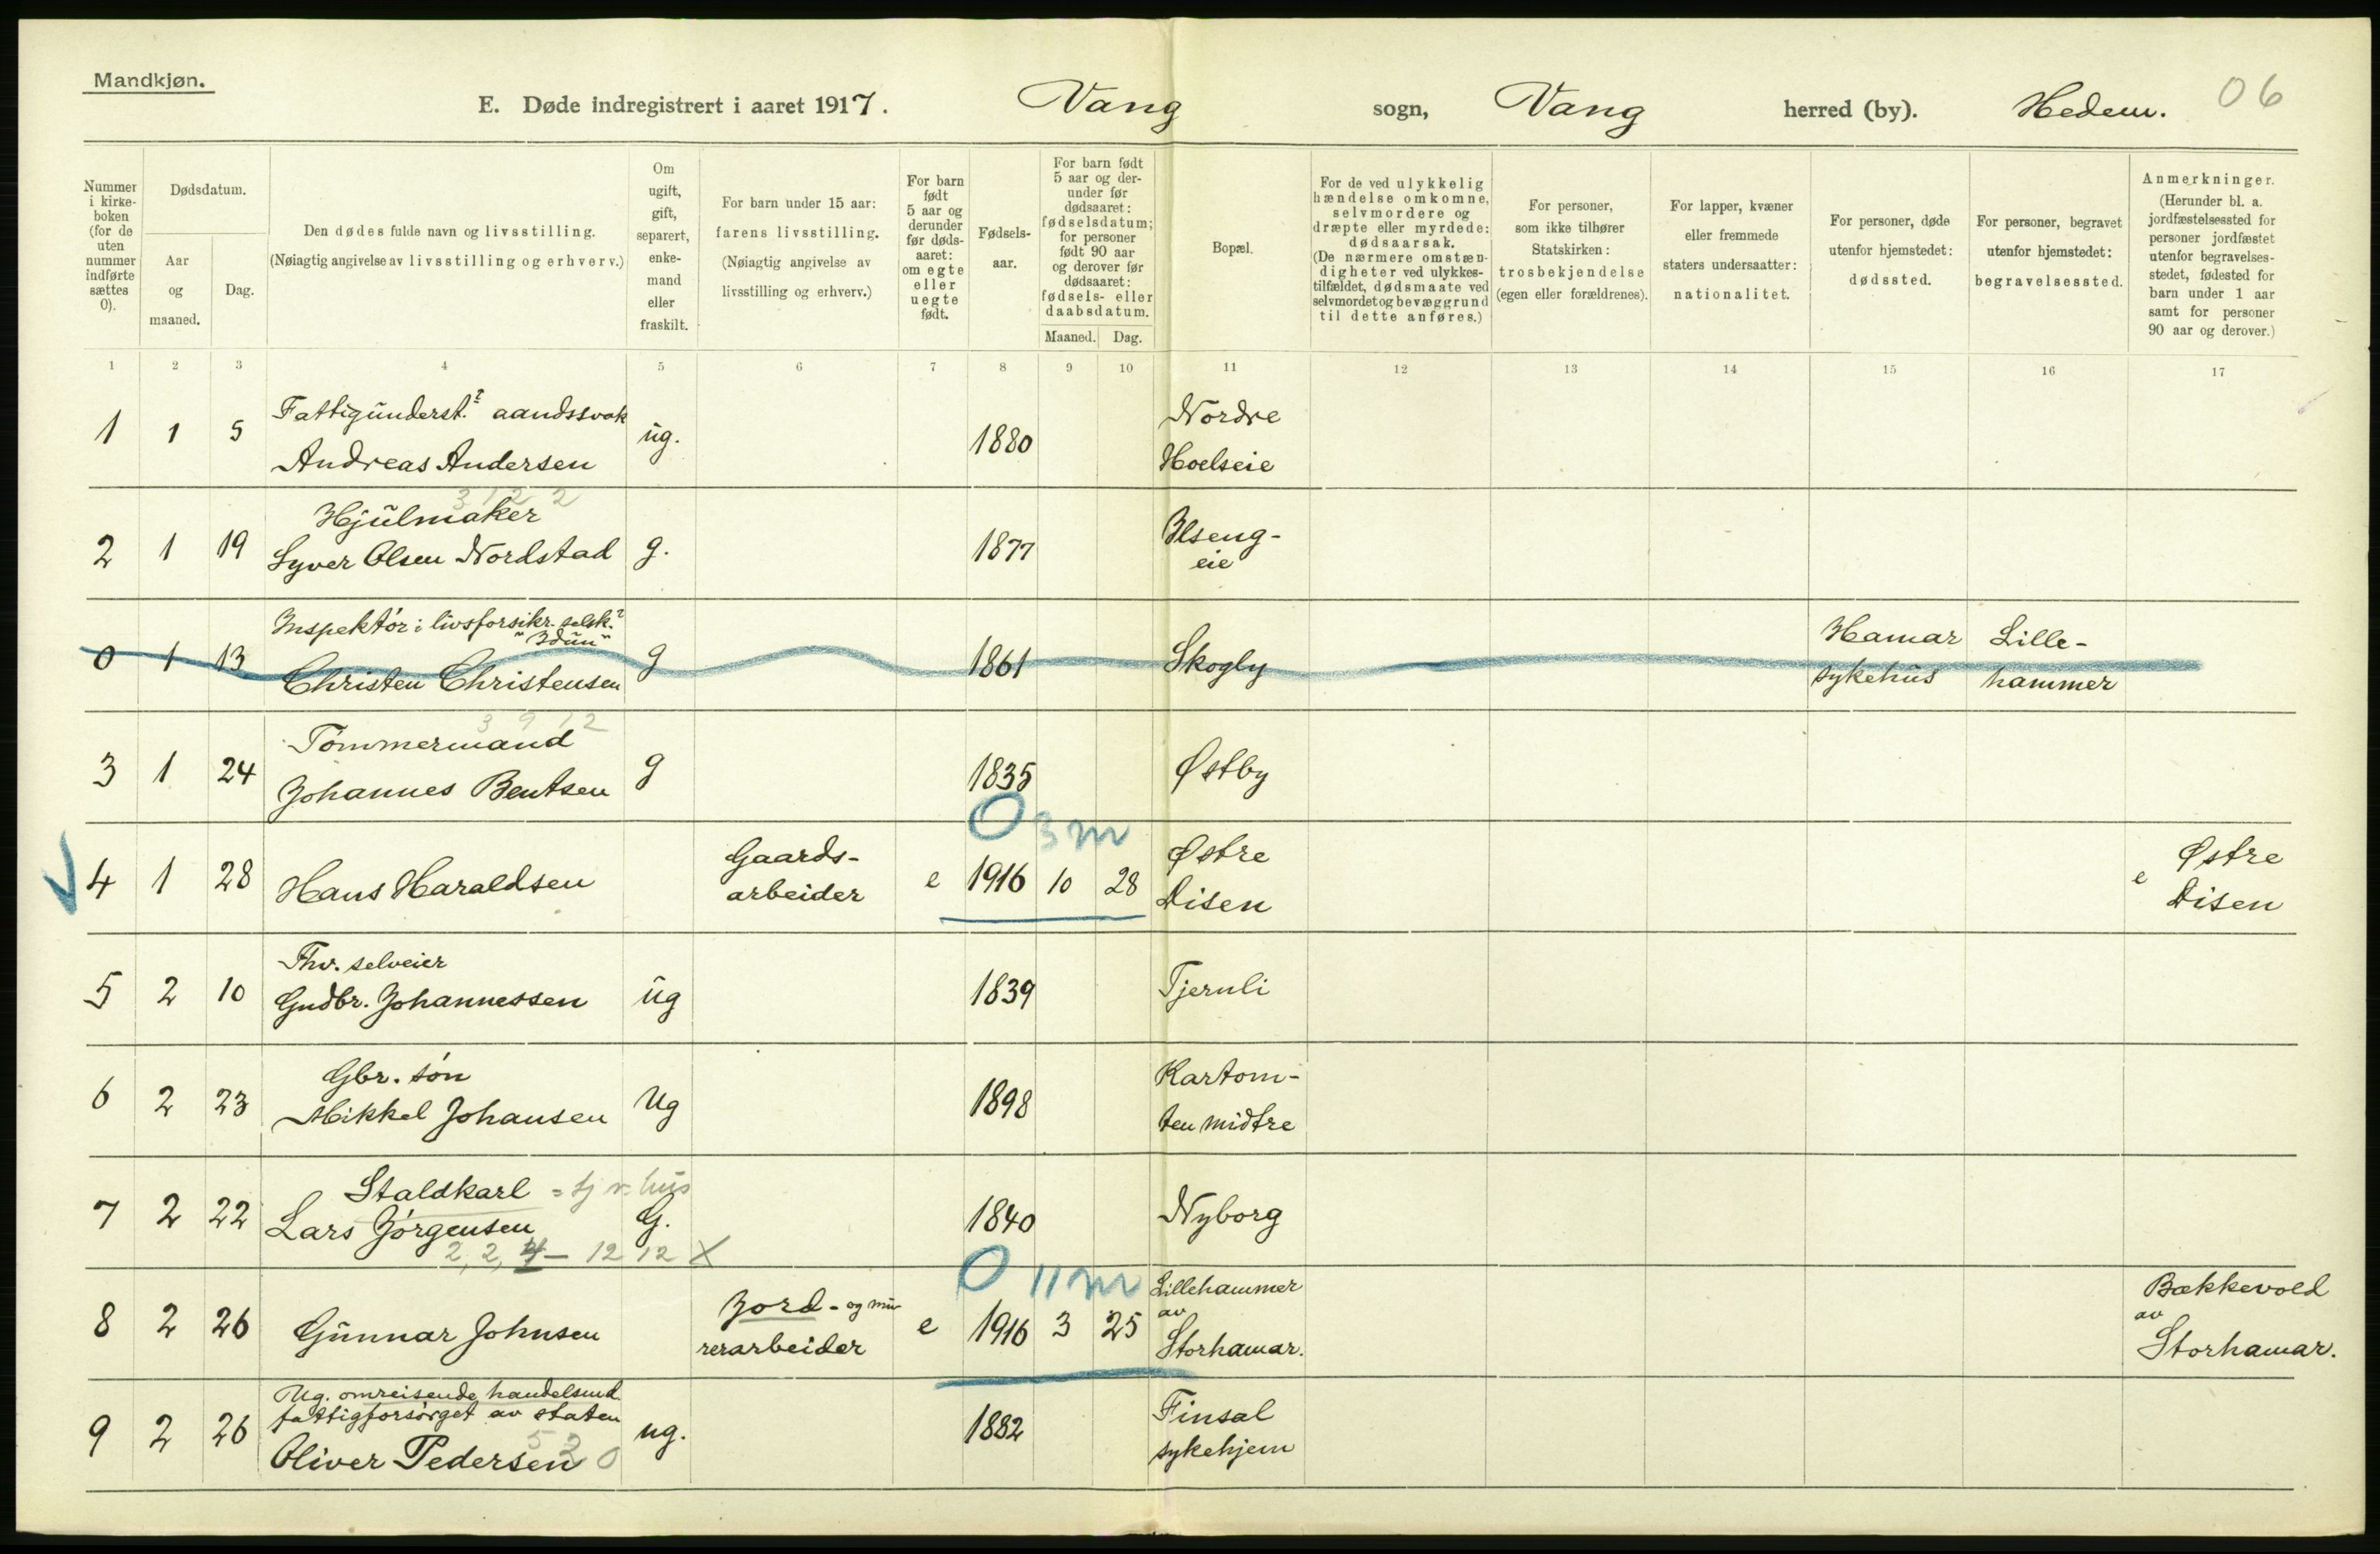 Mandkjøn.
E. Døde indregistrert i aaret 1917. Vang sogn, Vang herred (by). Hedem. 06
Nummer i kirke-boken (for de uten nummer indførte sættes 0).
Dødsdatum.
Aar og maaned.
Dag.
Den dødes fulde navn og livsstilling.
(Nøiagtig angivelse av livsstilling og erhverv.)
Om ugift, gift, separert, enke-mand eller fraskilt.
For barn under 15 aar: farens livsstilling. (Nøiagtig angivelse av livsstilling og erhverv.)
For barn født 5 aar og derunder før døds-aaret: om egte eller uegte født.
Fødsels-aar.
For barn født 5 aar og der-under før dødsaaret: fødselsdatum; for personer født 90 aar og derover før dødsaaret: fødsels- eller daabsdatum.
Maaned. Dag.
Bopæl.
For de ved ulykkelig hændelse omkomne, selvmordere og dræpte eller myrdede: dødsaarsak. (De nærmere omstæn-digheter ved ulykkes-tilfældet, dødsmaate ved selvmordet og bevæggrund til dette anføres.)
For personer, som ikke tilhører Statskirken: trosbekjendelse (egen eller forældrenes).
For lapper, kvæner eller fremmede staters undersaatter: nationalitet.
For personer, døde utenfor hjemstedet: dødssted.
For personer, begravet utenfor hjemstedet: begravelsessted.
Anmerkninger. (Herunder bl. a. jordfæstelsessted for personer jordfæstet utenfor begravelses-stedet, fødested for barn under 1 aar samt for personer 90 aar og derover.)
1 2 3 4 5 6 7 8 9 10 11 12 13 14 15 16 17
Fattigunderst.? aandssvak Nordre
1 1 5 Andreas Andersen ug. 1880 Hoelseie
3 1 2 2
Hjulmaker Ilseng-
2 1 19 Syver Olsen Nordstad g. 1877 eie
Inspektør i livsforsikr. selsk.? Hamar Lille-
"Idun"
0 1 13 Christen Christensen g 1861 Skogly sykehus hammer
3 9 12
Tømmermand
3 1 24 Johannes Bentsen g 1835 Østby
0 3 m
Gaards- Østre Østre
4 1 28 Hans Haraldsen arbeider e 1916 10 28 Disen e Disen
Fhv. selveier
5 2 10 Gudbr. Johannessen ug 1839 Tjernli
Gbr. søn Kartom-
6 2 23 Mikkel Johansen Ug 1898 ten midtre
Staldkarl = tj v. hus
7 2 22 Lars Jørgensen G. 1840 Nyborg
2, 2, 4 — 12 12 X
0 11 m
Jord- og mu- Lillehammer Bækkevold
av av
8 2 26 Gunnar Johnsen rerarbeider e 1916 3 25 Storhamar. Storhamar.
Ug. omreisende handelsmd.
fattigforsørget av staten Finsal
9 2 26 Oliver Pedersen ug. 1882 sykehjem